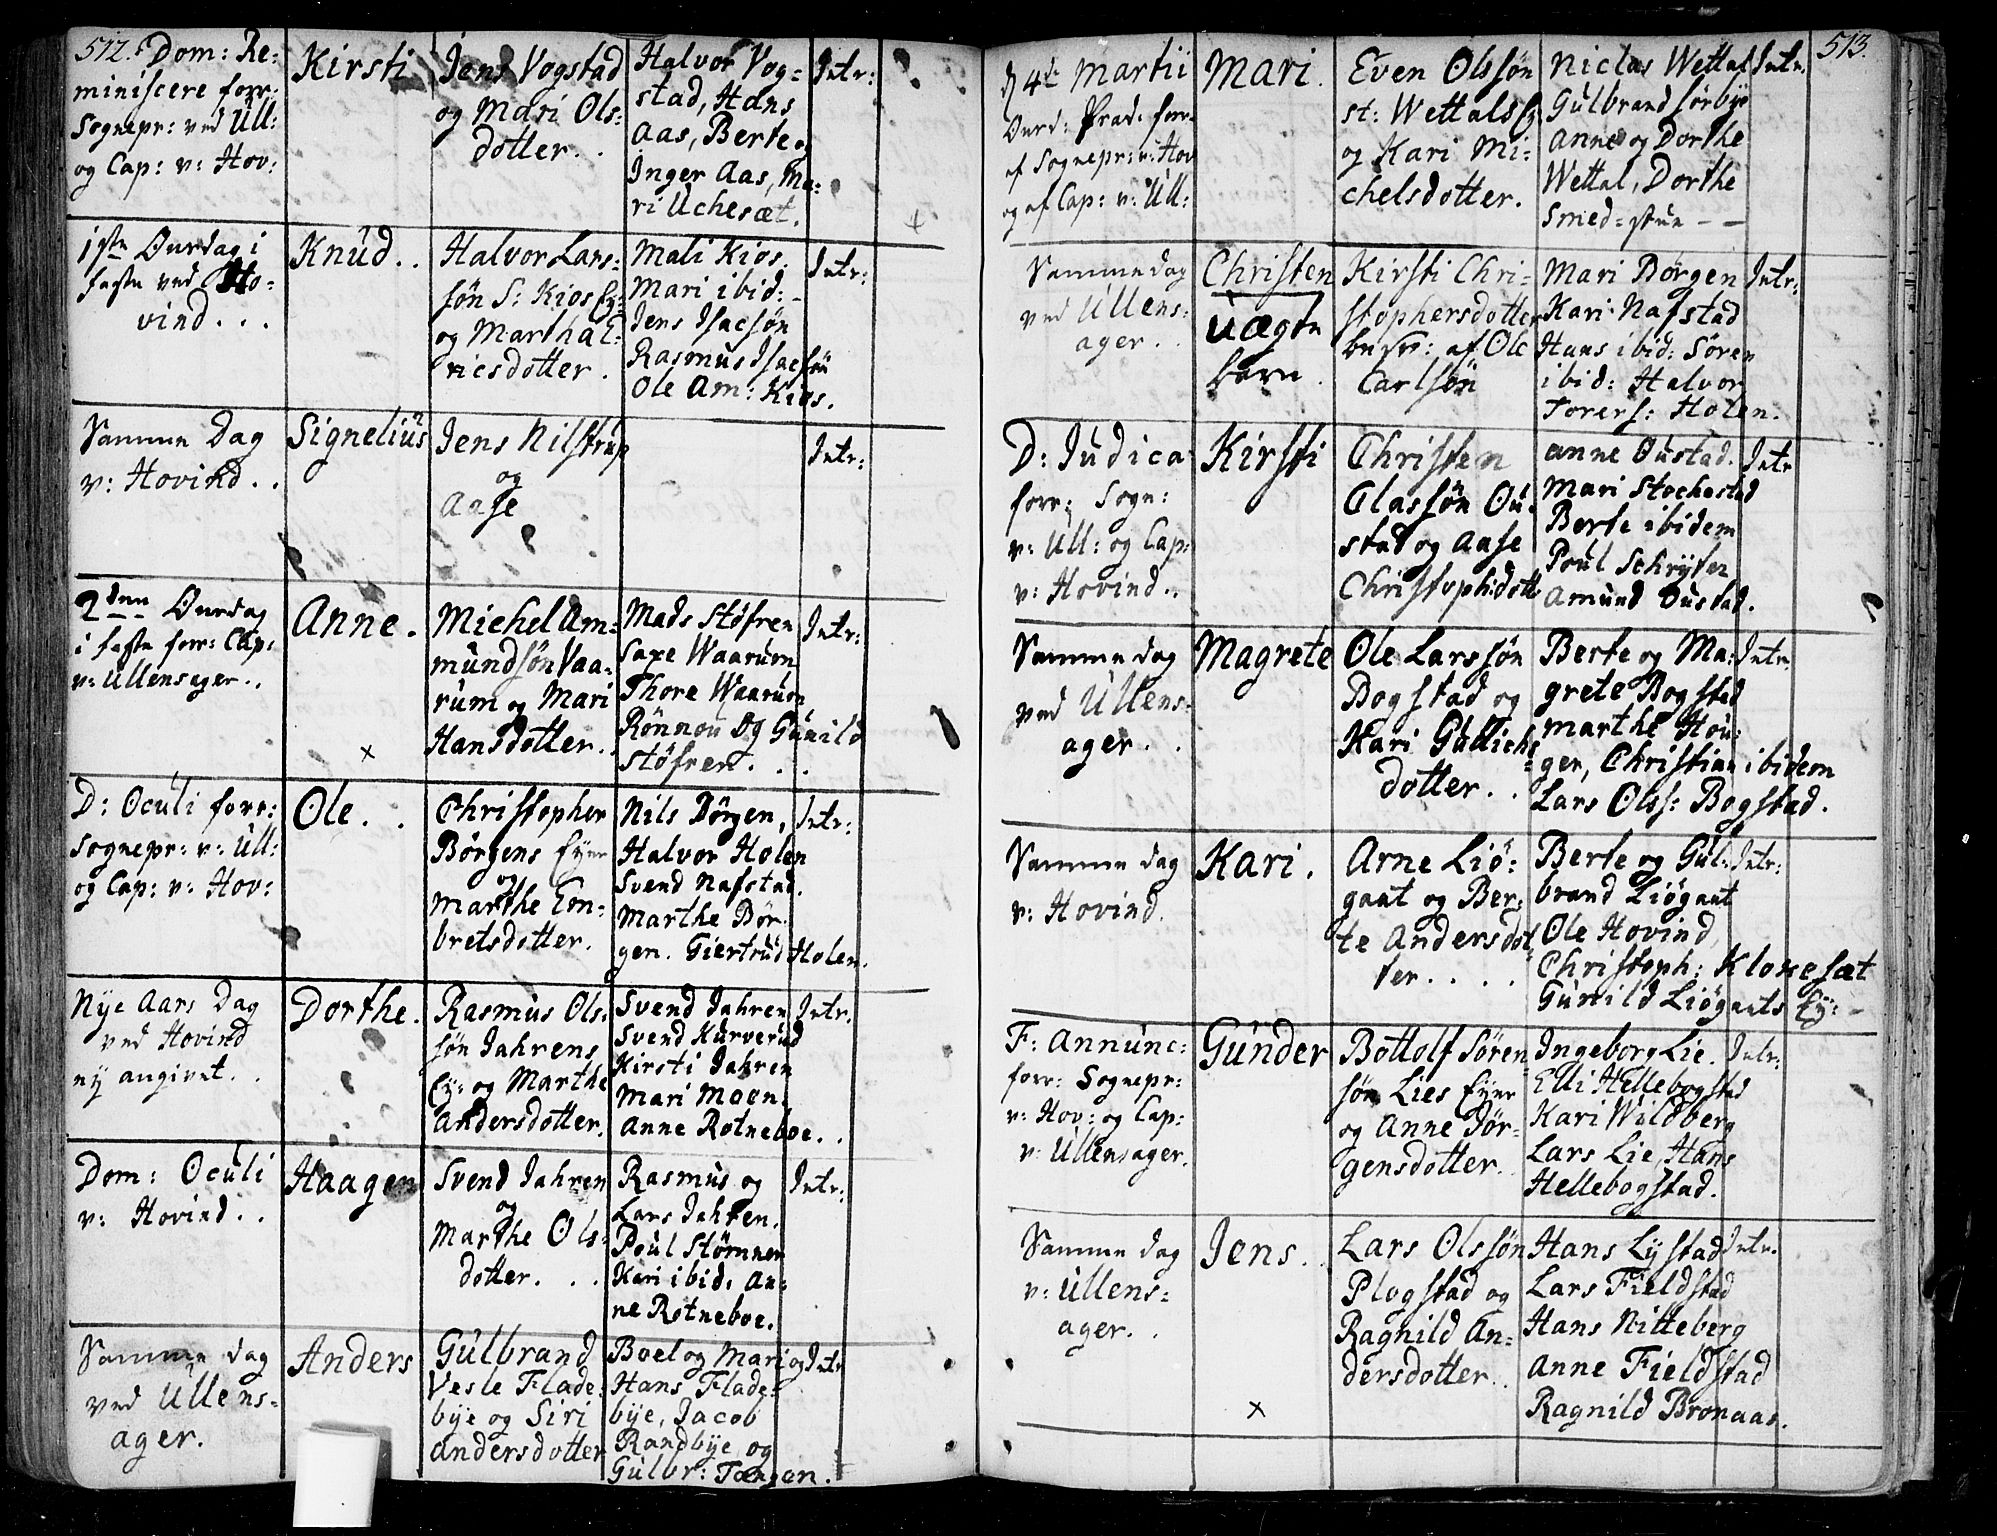 512. Dom: Re-
miniscere forr:
Sognepr: ved Ull:
og Cap: v: Hov:
Kirsti
Jens Vogstad
og Mari Ols-
dotter.
Halvor Vog-
stad, Hans
Aas, Berte og
Inger Aas, Ma-
ri Uchesæt.
Intr:
1ste Onsdag i
faste ved Ho-
vind...
Knud..
Halvor Lars-
søn S: Kios Ey:
og Martha E-
ricsdotter.
Mali Kios.
Mari ibid:
Jens Isacsøn
Rasmus Isacsøn
Ole Am: Kios.
Intr:
Samme Dag
v: Hovind..
Signelius
Jens Nilstrup
og
Aase
Intr:
2den Onsdag
i faste forr: Cap:
v: Ullensager..
Anne.
Michel Am-
mundsøn Vaa-
rum og Mari
Hansdotter..
Mads Støfren
Saxe Waarum
Thore Waarum
Rønnou og Gunild
Støfren...
Intr:
D: Oculi forr:
Sognepr: v: Ull:
og Cap: v: Hov:
Ole..
Christopher
Børgens Eyer
og
Marthe Em-
bretsdotter.
Nils Børgen,
Halvor Holen
Svend Nafstad.
Marthe Bør-
gen. Giertrud Holen.
Intr:
Nye Aars Dag
ved Hovind
ny angivet..
Dorthe.
Rasmus Ols-
søn Jahrens
Ey: og Marthe
Andersdotter.
Svend Jahren
Svend Kurverud
Kirsti Jahren
Mari Moen.
Anne Rotneboe..
Intr:
Dom: Oculi
v: Hovind..
Haagen
Svend Jahren
og
Marthe Ols-
dotter...
Rasmus og
Lars Jahren.
Poul Stømner
Kari ibid. An-
ne Rotneboe.
Intr:
Samme dag
ved Ullens-
ager.
Anders
Gulbrand
Vesle Flade-
bye og Siri
Andersdotter
Boel og Mari og
Hans Flade-
bye, Jacob
Randbye og
Gulbr: Tængen.
Intr
513.
d 4de Martii
Onsd: Præd. forr.
af Sognepr: v: Hov
og af Cap: v: Ull:
Mari.
Even Olssøn
st: Wettals Ey
og Kari Mi-
chelsdotter.
Niclas Wettal
Gulbrand Sørbye
Anne og Dorthe
Wettal, Dorthe
Smed-stuen - -
Intr.
Samme dag
ved Ullens-
ager..
Christen
Uægte
barn.
Kirsti Chri-
stophersdotter
af Ole
Carlsøn
Mari Børgen
Kari Nafstad
Hans ibid: Søren
ibid: Halvor
Torers: Holen.
Intr:
D: Judica
forr: Sogn:
v: Ull: og Cap:
v: Hovind..
Kirsti
Christen
Olassøn Ou-
stad og Aase
Christophdott
Anne Oustad.
Mari Stochestad
Berte ibidem
Poul Schryfer
Amund Oustad.
Intr
Samme dag
ved Ullens-
ager..
Magrete
Ole Larssøn
Bogstad og
Kari Gullichs-
dotter..
Berte og Ma-
grete Bogstad
Marthe Hou-
ger, Christian ibidem
Lars Olss: Bogstad.
Intr.
Samme dag
v: Hovind.
Kari.
Arne Liø-
gaat og Ber-
te Andersdot-
ter....
Berte og Gul-
brand Liøgaat
Ole Hovind,
Christoph: Kloxesæt
Gunild Liøgaats Ey:
Intr:
F: Annunc:
forr: Sognepr:
v: Hov: og Cap:
v: Ullensager.
Gunder
Bottolf Søren-
søn Lies Eyer
og Anne Jør-
gensdotter.
Ingeborg Lie.
Elli Hellebogstad
Kari Wildberg
Lars Lie, Hans
Hellebogstad.
Intr.
Samme dag
v: Ullens-
ager..
Jens..
Lars Olssøn
Plogstad og
Ragnild An-
dersdotter..
Hans Lystad
Lars Fieldstad
Hans Nitteberg
Anne Fieldstad
Ragnild Bronaas.
Intr.